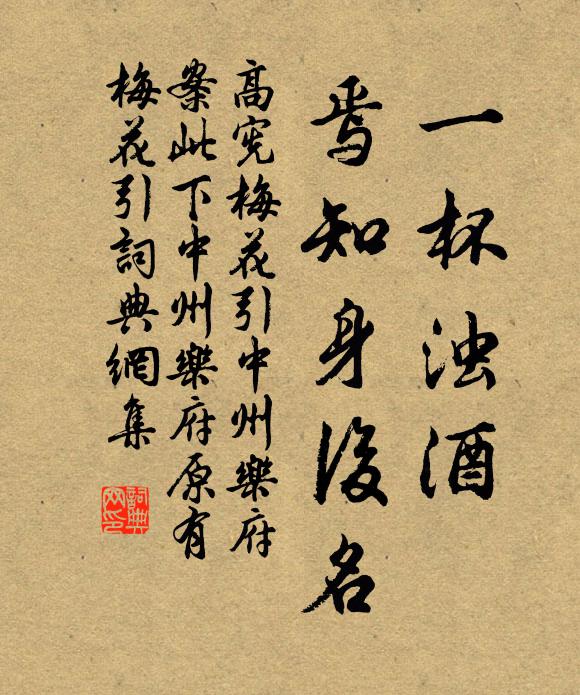 一杯浊酒
焉知身後名
高宪梅花引中州樂府
案此下中州樂府原有
梅花引詞典網集
詞典網印